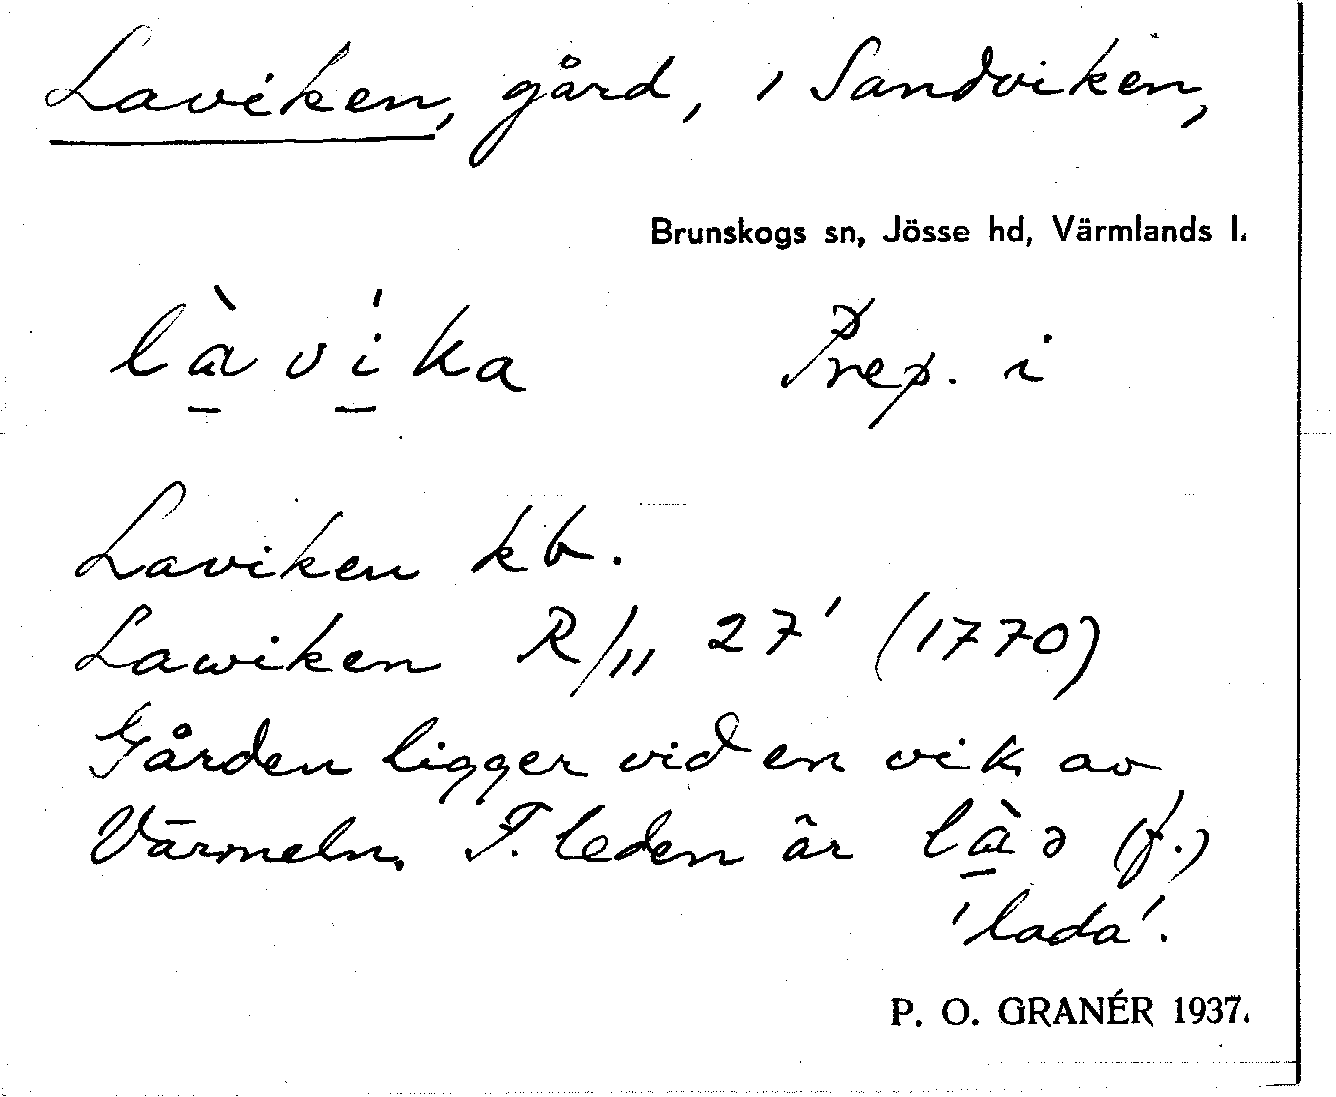 Laviken, gård, i Sandviken,
Brunskogs sn, Jösse hd, Värmlands l.
làvíka Prep. i
Laviken kb.
Lawiken R/11 27' (1770)
Gården ligger vid en vik av
Värmeln. F. leden är làə (f.)
'lada'.
P. O. GRANÉR 1937.